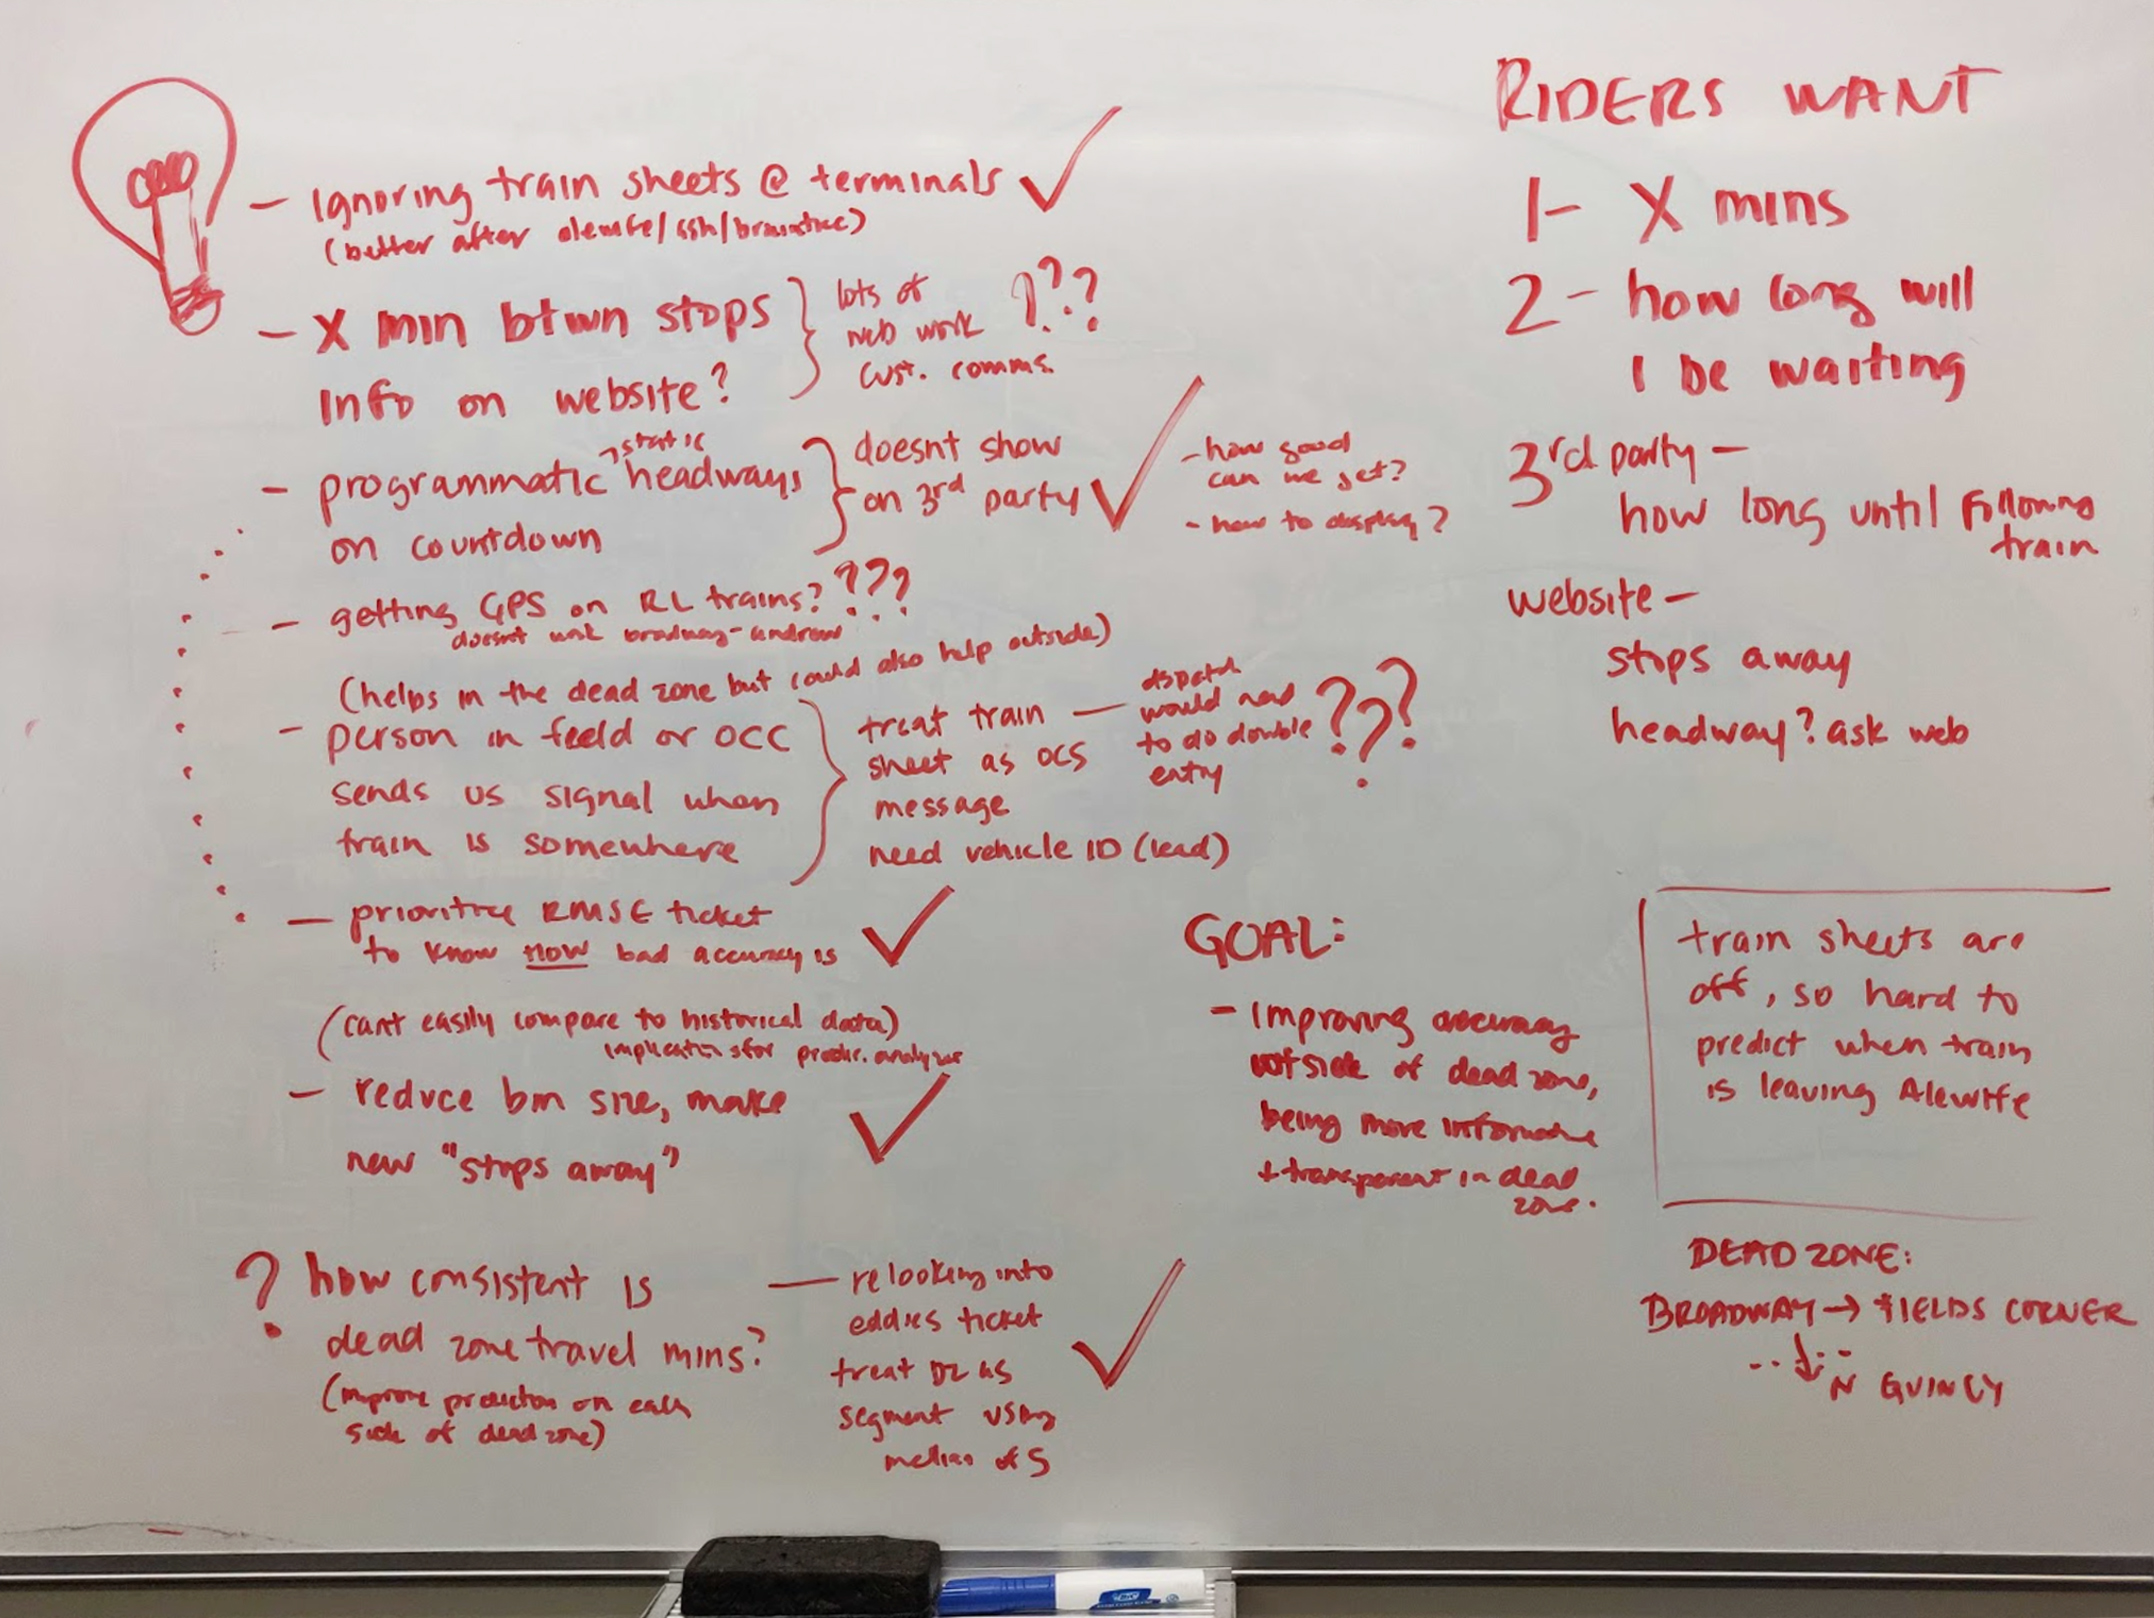 - Ignoring train sheets @ terminals ✓
(better after alewife/ssh/braintree)
- X min btwn stops
info on website?
} lots of
web work
cust. comms.
???
- programmatic headways
→static
on countdown
} doesnt show
on 3rd party ✓
- how good
can we get?
- how to display?
- getting GPS on RL trains? ???
doesnt work broadway-andrew
(helps in the dead zone but could also help outside)
- person in field or OCC
sends us signal when
train is somewhere
} treat train
sheet as OCS
message
need vehicle ID (lead)
— dispatch
would need
to do double
entry
????
- prioritize RMSE ticket ✓
to know HOW bad accuracy is
(cant easily compare to historical data)
implications for predic. analyzer
- reduce bin size, make
new "stops away" ✓
? how consistent is
dead zone travel mins?
(improve prediction on each
side of dead zone)
— relooking into
eddies ticket
treat DZ as
segment using
median of 5
✓
RIDERS WANT
1- X mins
2- how long will
I be waiting
3rd party -
how long until following
train
website -
stops away
headway? ask web
GOAL:
- Improving accuracy
outside of dead zone,
being more informative
+ transparent in dead
zone.
train sheets are
off, so hard to
predict when train
is leaving Alewife
DEAD ZONE:
BROADWAY → FIELDS CORNER
↓
N QUINCY
BIC